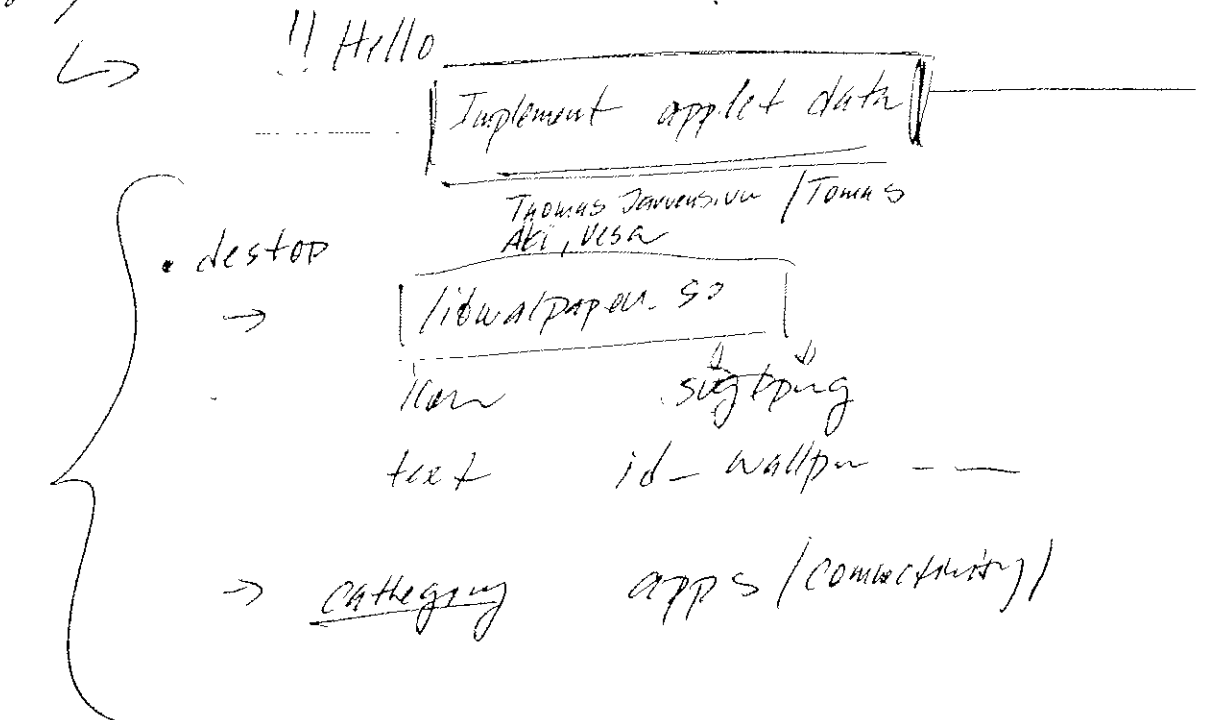 !! Hello
Implement applet data
Thomas Jarvensivu / Tomas
Aki, Vesa
• destop
→ libwalpaper.so
icon svg png
text id_wallpa - —
→ cathegory apps / connectivity /